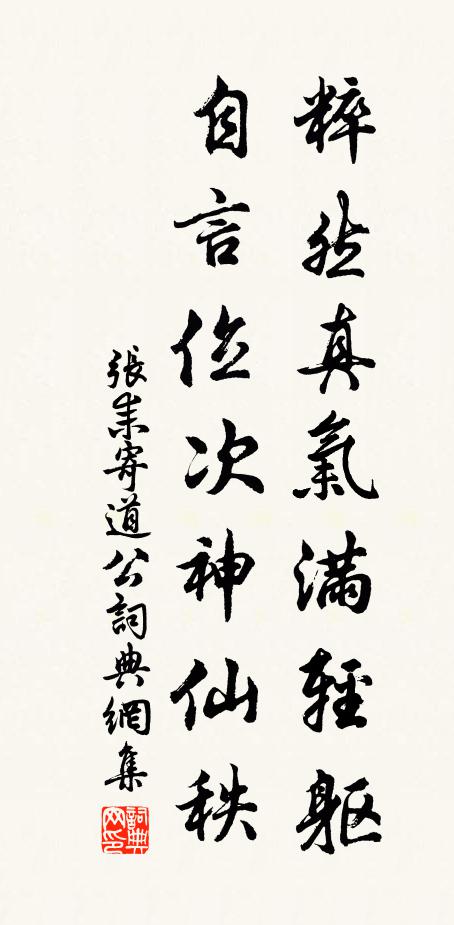 粹然真氣滿輕軀
自言位次神仙秩
張耒寄道公詞典網集
詞典
网印